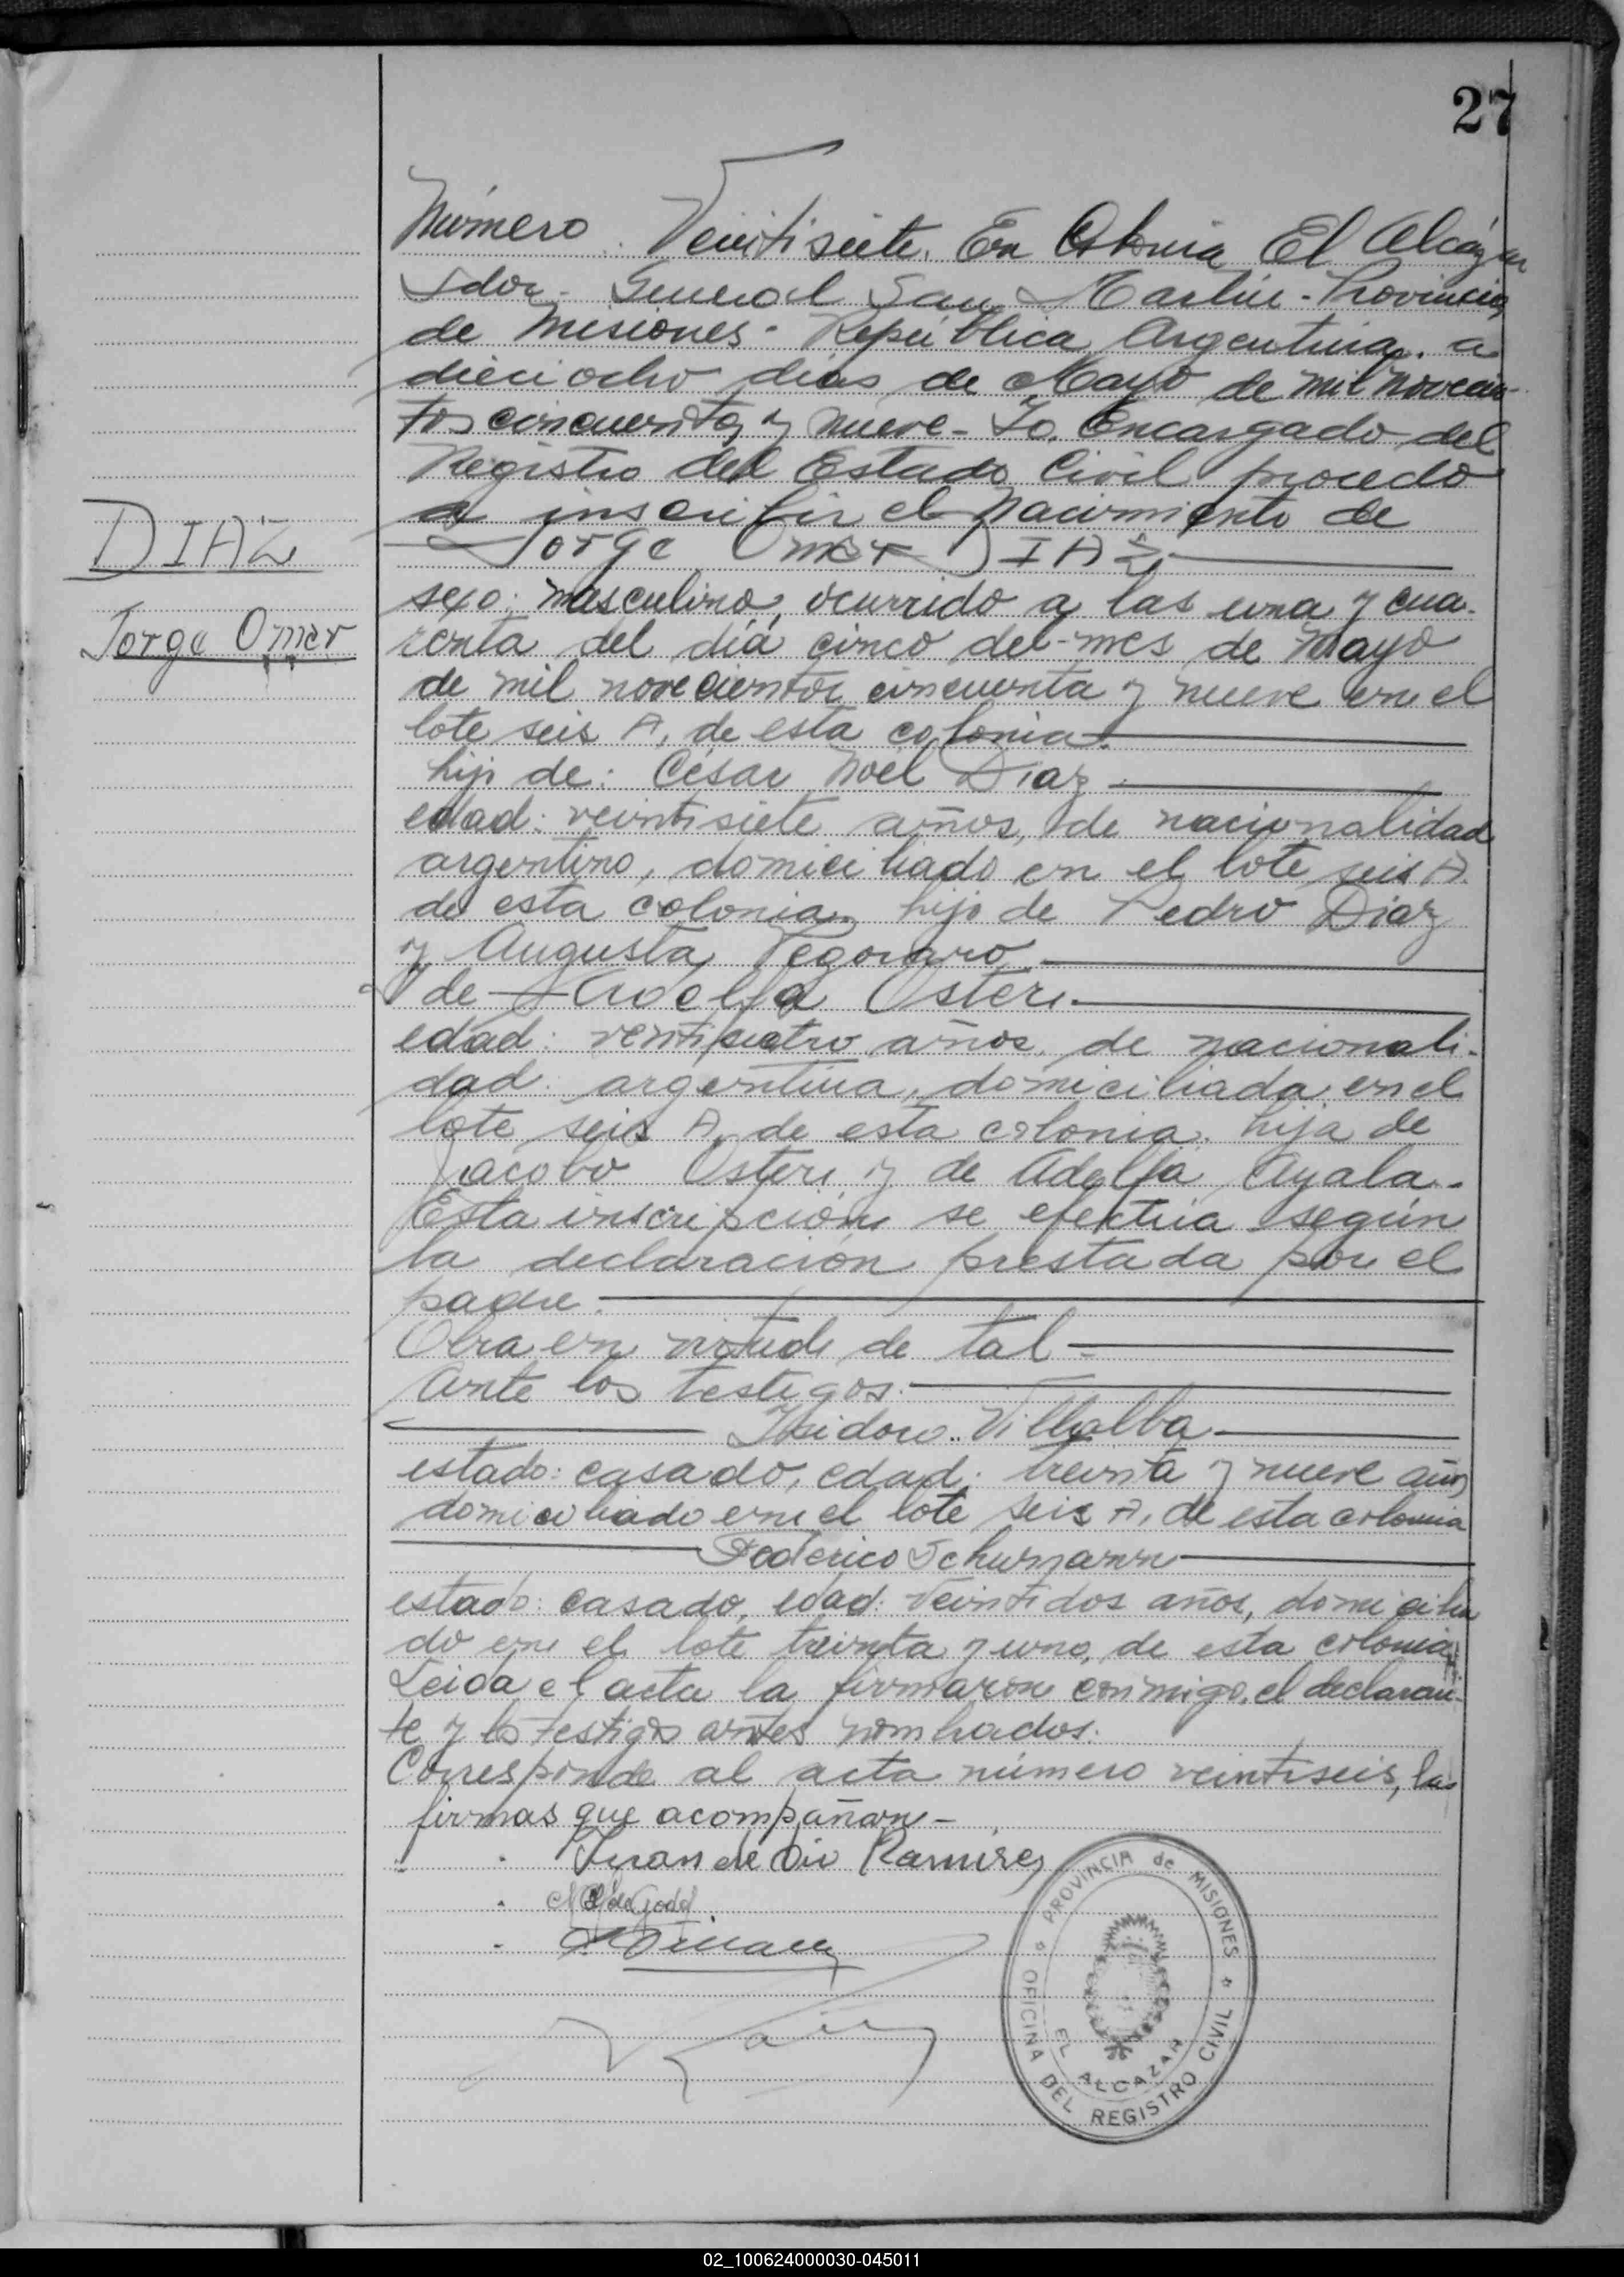 27
Número. Veintisiete. En Colonia El Alcázar
Ldor. General San Martín - Provincia
de Misiones - República Argentina. a
dieciocho días de Mayo de mil novecien-
tos cincuenta y nueve - Yo, Encargado del
Registro del Estado Civil procedo
a inscribir el nacimiento de
Jorge Omar DIAZ
sexo: masculino, ocurrido a las una y cua-
renta del día cinco del mes de Mayo
de mil novecientos cincuenta y nueve en el
lote seis A, de esta colonia.
hijo de: César Noel Diaz
edad: veintisiete años, de nacionalidad
argentino, domiciliado en el lote seis A.
de esta colonia, hijo de Pedro Diaz
y Augusta Pegoraro.
y de Adelfa Osteri
edad: venticuatro años, de nacionali-
dad: argentina, domiciliada en el
lote seis A, de esta colonia. hija de
Jacobo Osteri y de Adelfa Ayala.
Esta inscripción se efectúa según
la declaración prestada por el
padre.
Obra en virtud de tal
Ante los testigos.
Isidoro Villalba
estado: casado, edad: treinta y nueve años
domiciliado en el lote seis A, de esta colonia
Federico Schumann
estado: casado, edad: veintidos años, domicilia
do en el lote treinta y uno, de esta colonia
Leida el acta la firmaron conmigo, el declaran-
te y los testigos antes nombrados.
Corresponde al acta número veintiseis, las
firmas que acompañan -
Juan de Dio Ramires
DIAZ
Jorge Omar
PROVINCIA de MISIONES
OFICINA DEL REGISTRO CIVIL
EL ALCAZAR
02_100624000030-045011